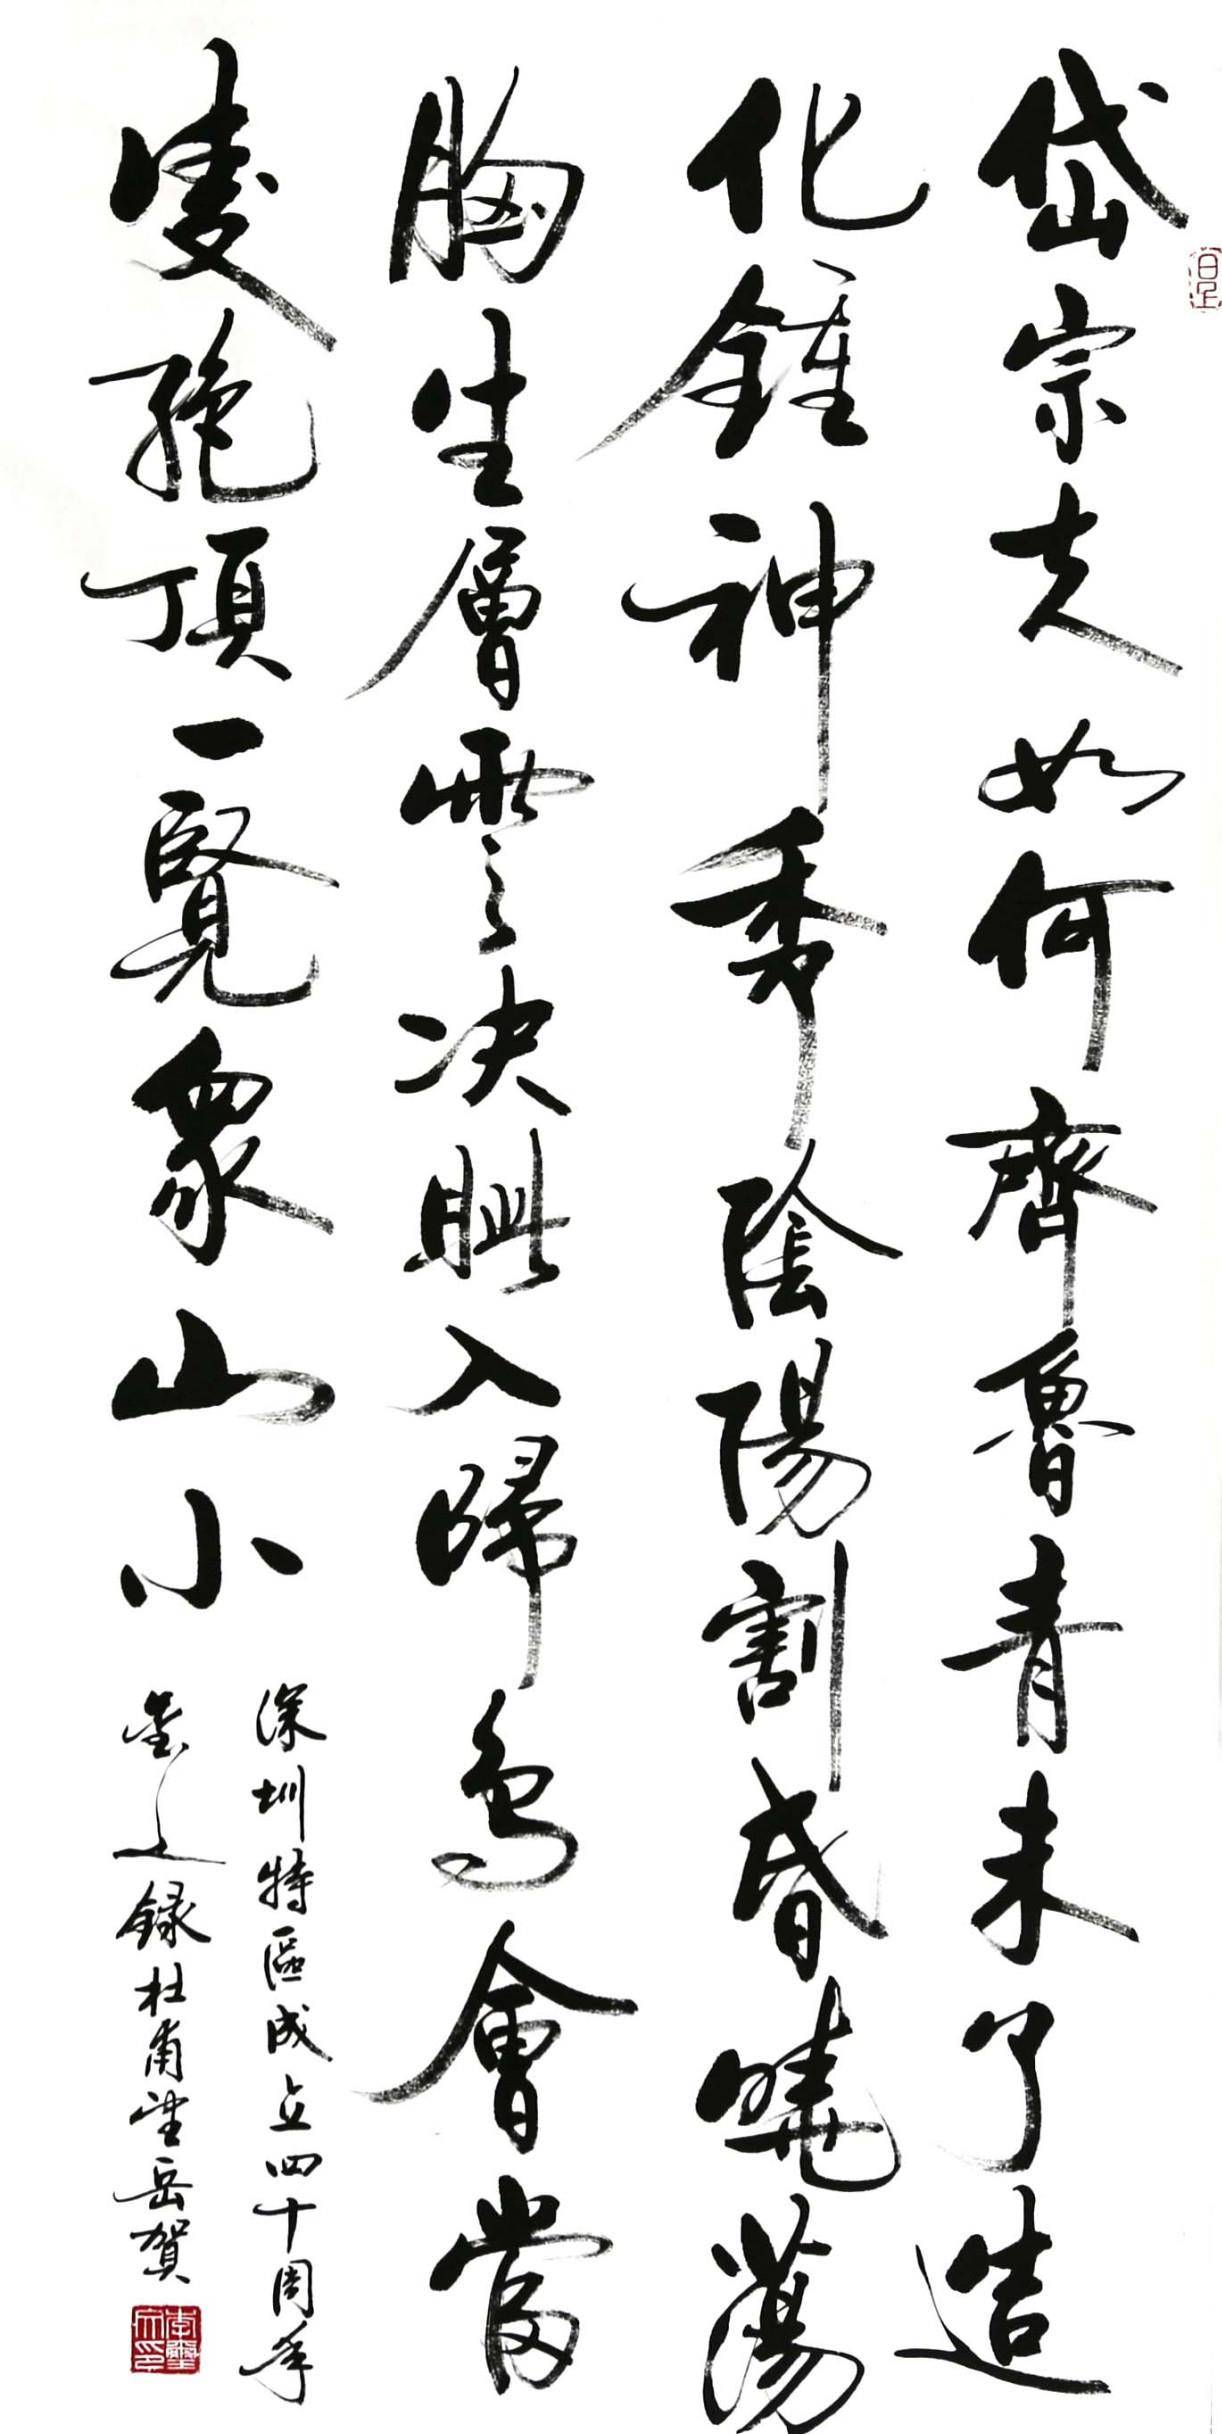 岱宗夫如何齊魯青未了造
化鍾神秀陰陽割昏曉蕩
胸生層雲决眦入歸鳥會當
凌絕頂一覽衆山小
深圳特區成立四十周年
之錄杜甫望岳賀